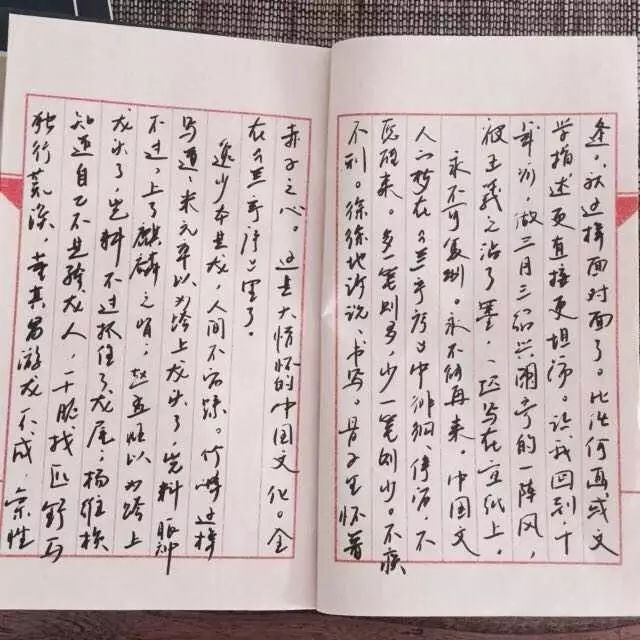 逢，就这样面对面了。比任何画或文
学描述更直接更坦荡。让我回到十
年前，做三月三绍兴兰亭的一阵风，
被王羲之沾了墨，一一写在宣纸上。
永不可复制。永不能再来。中国文
人的梦在《兰亭序》中徘徊、停泊，不
愿醒来。多一笔则多，少一笔则少。不疾
不利。徐徐地诉说、书写。骨子里怀着
赤子之心。这是大情怀的中国文化。全
在《兰亭序》里了。
逸少本是龙，人间不留踪。竹鹤这样
写道，米元章以为骑上龙头了，岂料眼
不过，上了麒麟之背，赵孟頫以为骑上
龙头了，岂料不过抓住了龙尾；杨维桢
知道自己不是骑龙人，干脆找匹野马
独行荒漠，董其昌游龙不成，索性